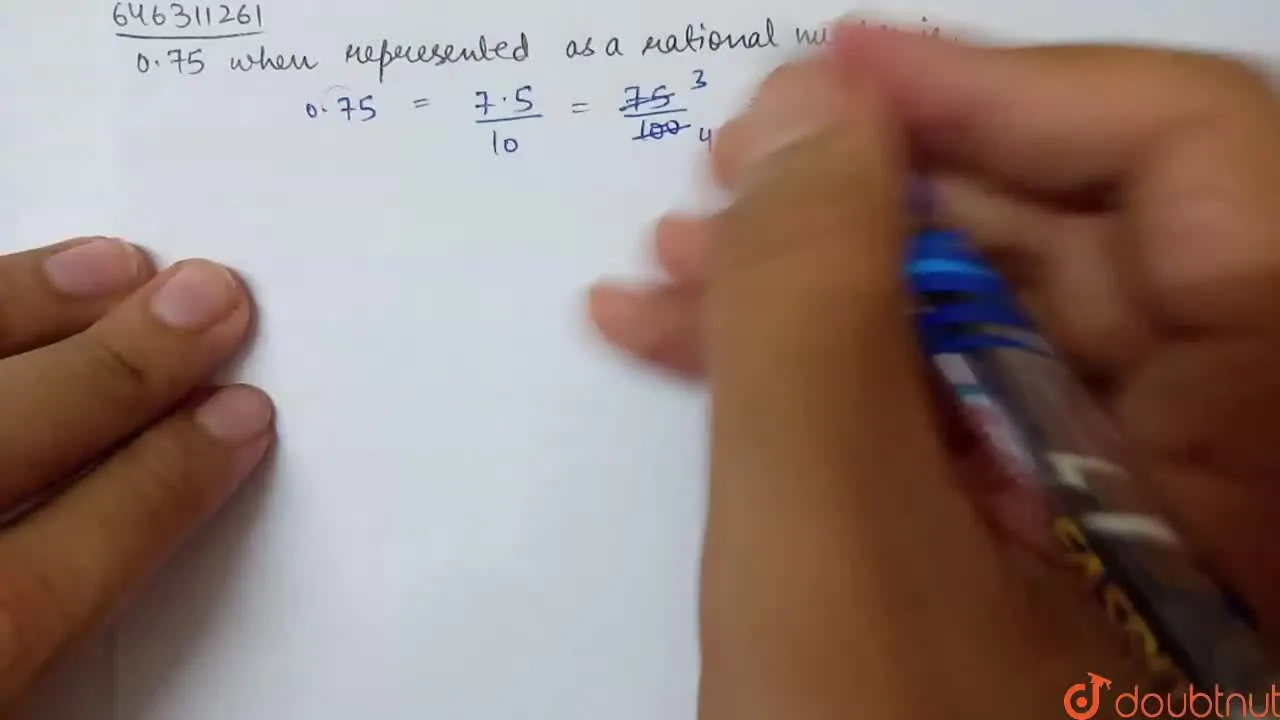 646311261
0.75 when represented as a rational
0.75 = 7.5/10 = 75/100 3 4
doubtnut